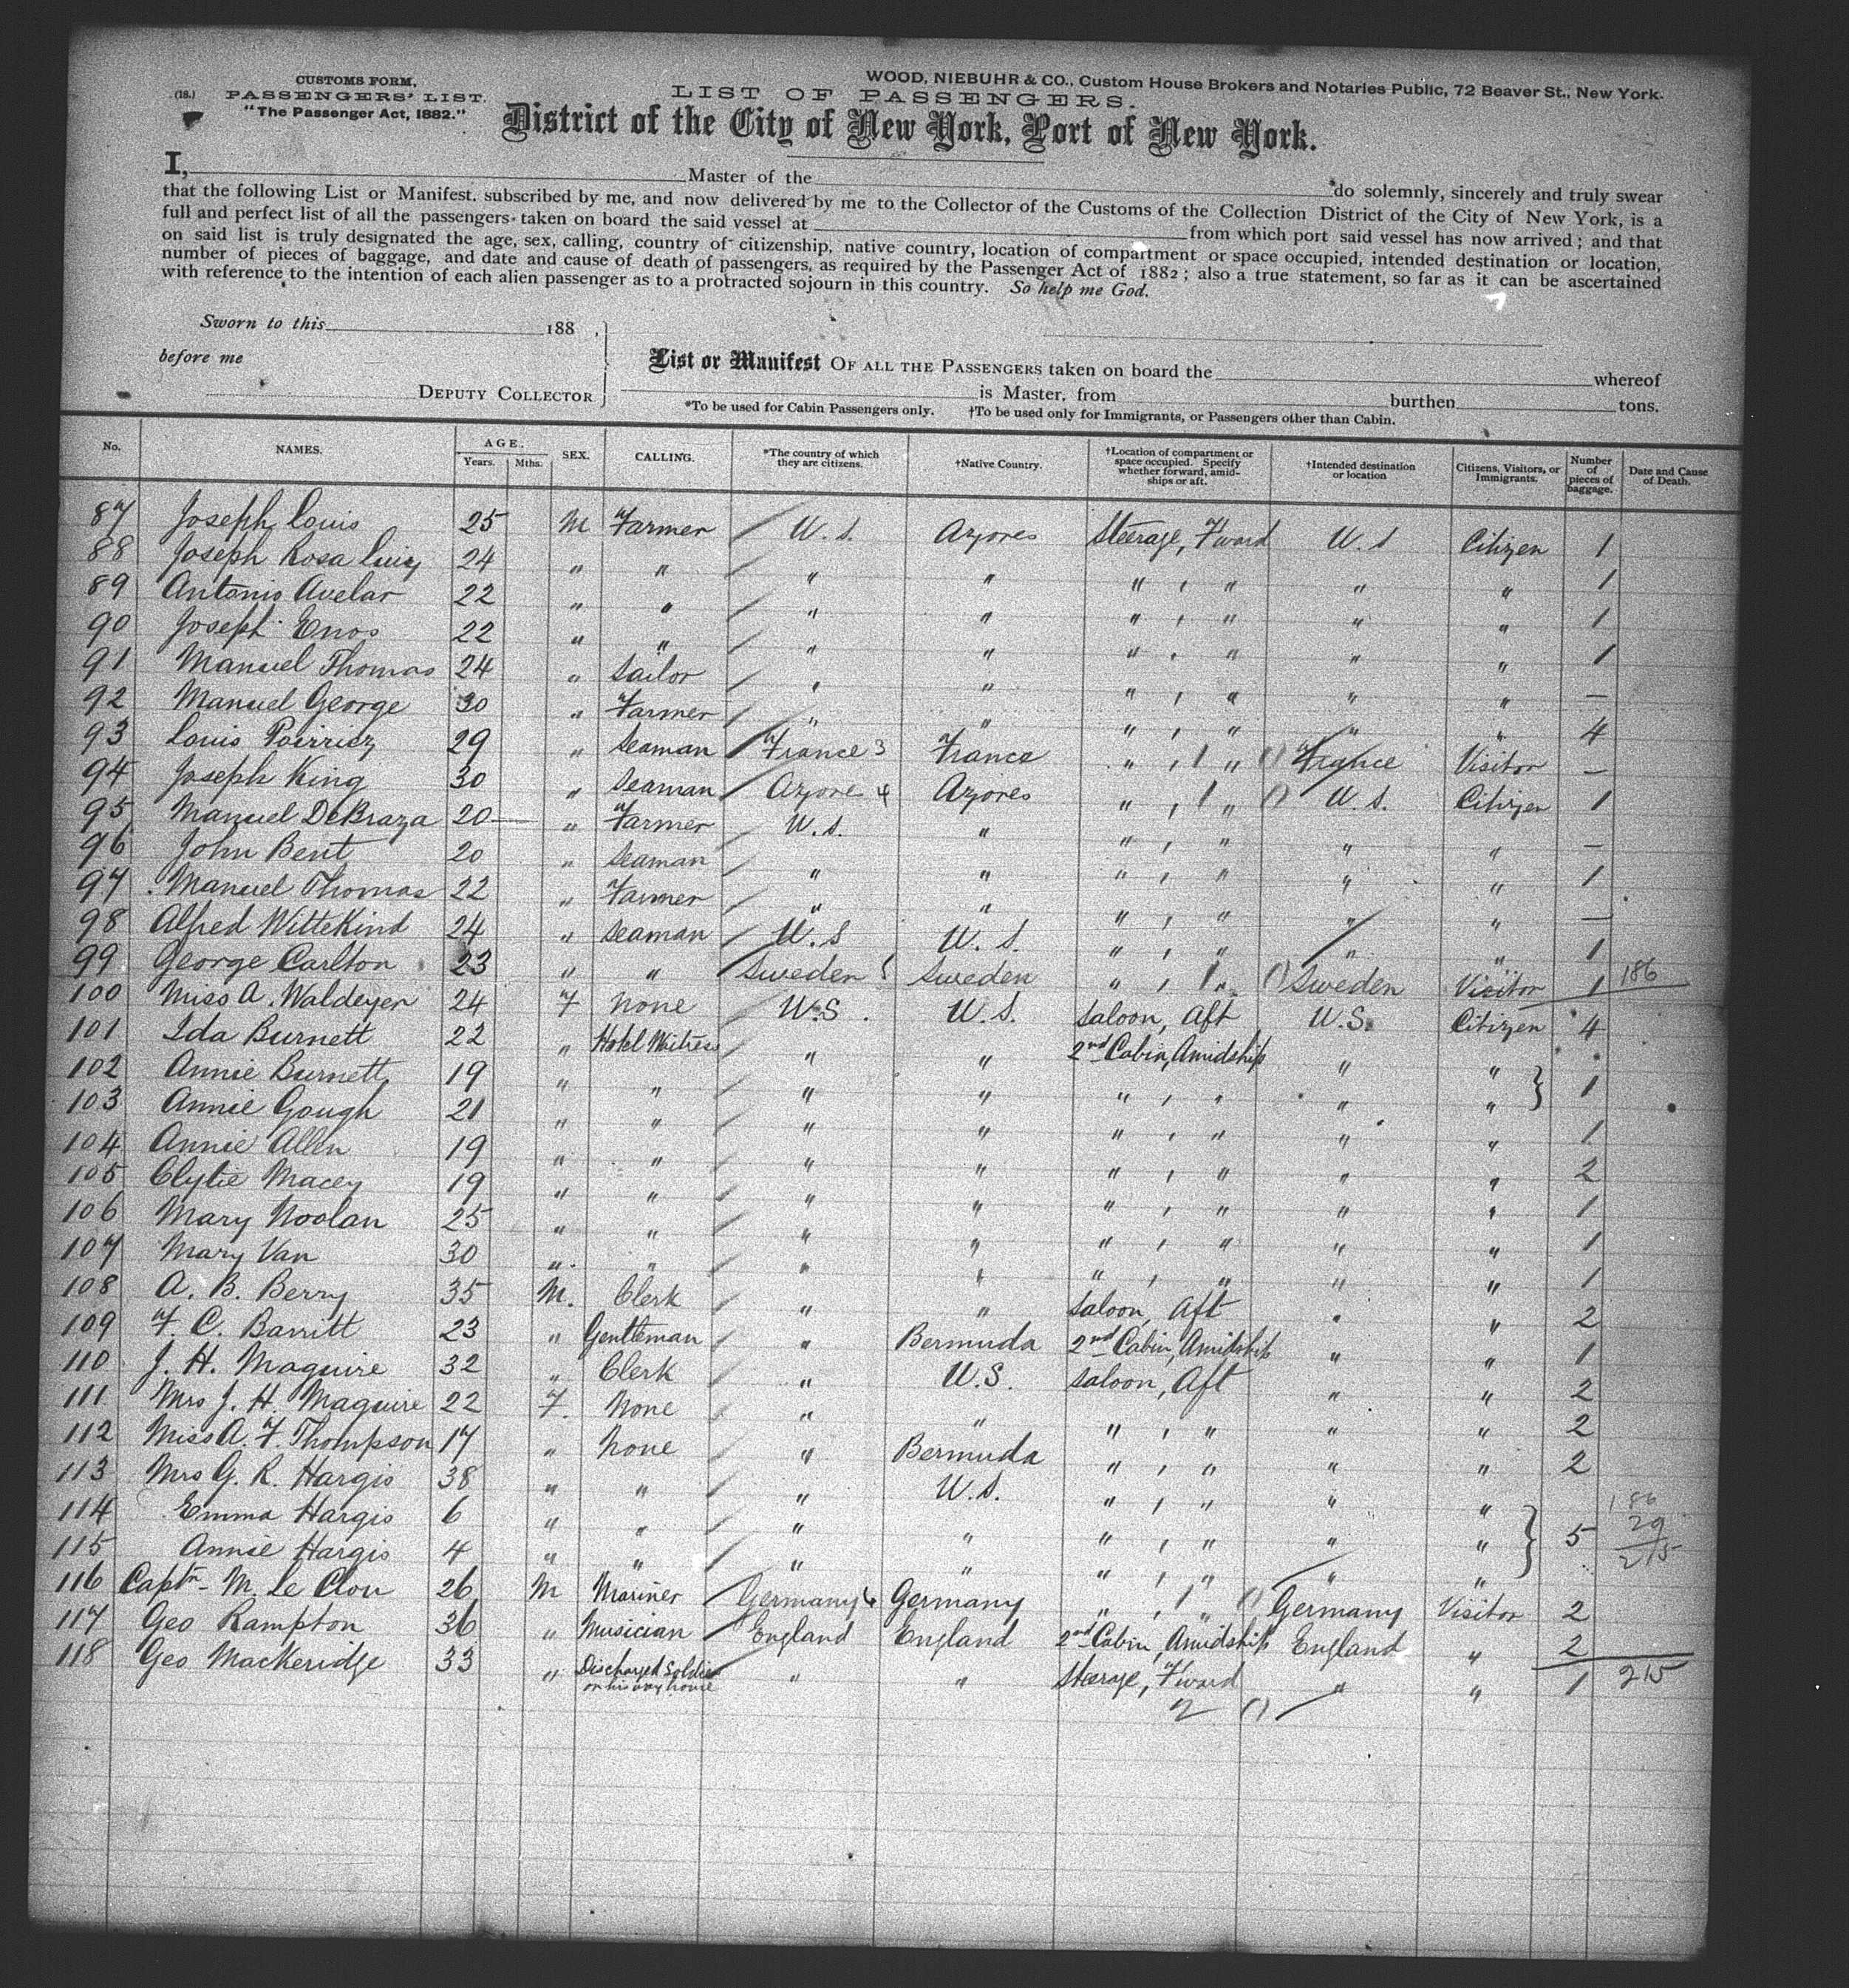 (18.)
CUSTOMS FORM,
PASSENGERS' LIST.
"The Passenger Act, 1882."
WOOD, NIEBUHR & CO., Custom House Brokers and Notaries Public, 72 Beaver St., New York.
LIST OF PASSENGERS.
District of the City of New York, Port of New York.
I, Master of the do solemnly, sincerely and truly swear
that the following List or Manifest, subscribed by me, and now delivered by me to the Collector of the Customs of the Collection District of the City of New York, is a
full and perfect list of all the passengers taken on board the said vessel at from which port said vessel has now arrived; and that
on said list is truly designated the age, sex, calling, country of citizenship, native country, location of compartment or space occupied, intended destination or location,
number of pieces of baggage, and date and cause of death of passengers, as required by the Passenger Act of 1882; also a true statement, so far as it can be ascertained
with reference to the intention of each alien passenger as to a protracted sojourn in this country. So help me God.
Sworn to this 188
before me
DEPUTY COLLECTOR
List or Manifest OF ALL THE PASSENGERS taken on board the whereof
is Master, from burthen tons.
*To be used for Cabin Passengers only. †To be used only for Immigrants, or Passengers other than Cabin.
No. NAMES. AGE. Years. Mths. SEX. CALLING. *The country of which they are citizens. †Native Country. †Location of compartment or space occupied. Specify whether forward, amidships or aft. †Intended destination or location Citizens, Visitors, or Immigrants. Number of pieces of baggage. Date and Cause of Death.
87 Joseph Louis 25 M Farmer U.S. Azores Steerage, F'ward U.S Citizen 1
88 Joseph Rosa Luiz 24 " " " " " , " " " 1
89 Antonio Avelar 22 " " " " " , " " " 1
90 Joseph Enos 22 " " " " " , " " " 1
91 Manuel Thomas 24 " Sailor " " " , " " " —
92 Manuel George 30 " Farmer " " " , " " " 4
93 Louis Poirriez 29 " Seaman France 3 France " , " France Visitor —
94 Joseph King 30 " Seaman Azores 4 Azores " , " U.S. Citizen 1
95 Manuel DeBraza 20 " Farmer U.S. " " , " " " —
96 John Bent 20 " Seaman " " " , " " " 1
97 Manuel Thomas 22 " Farmer " " " , " " " —
98 Alfred Wittekind 24 " Seaman U.S U.S. " , " " " 1
99 George Carlton 23 " " Sweden Sweden " , " Sweden Visitor 1 186
100 Miss A. Waldeyer 24 F None U.S. U.S. Saloon, Aft U.S. Citizen 4
101 Ida Burnett 22 " Hotel Waitress " " 2nd Cabin, Amidship " "
102 Annie Burnett 19 " " " " " , " " " } 1
103 Annie Gough 21 " " " " " , " " " 1
104 Annie Allen 19 " " " " " , " " " 2
105 Clytie Macey 19 " " " " " , " " " 1
106 Mary Noolan 25 " " " " " , " " " 1
107 Mary Van 30 " " " " " , " " " 1
108 A. B. Berry 35 M. Clerk " " Saloon, Aft " " 2
109 F. C. Barritt 23 " Gentleman " Bermuda 2nd Cabin, Amidship " " 1
110 J. H. Maguire 32 " Clerk " U.S. Saloon, Aft " " 2
111 Mrs J. H. Maguire 22 F. None " " " , " " " 2
112 Miss A. F. Thompson 17 " None " Bermuda " , " " " 2
113 Mrs G. R. Hargis 38 " " " U.S. " , " " "
114 Emma Hargis 6 " " " " " , " " " } 5 186
29
115 Annie Hargis 4 " " " " " , " " " 215
116 Captn. M. Le Clou 26 M Mariner Germany 4 Germany " , " Germany Visitor 2
117 Geo Rampton 36 " Musician England England 2nd Cabin, Amidship England " 2
118 Geo Mackeridge 33 " Discharged Soldier on his way home " " Steerage, F'ward " " 1 215
2